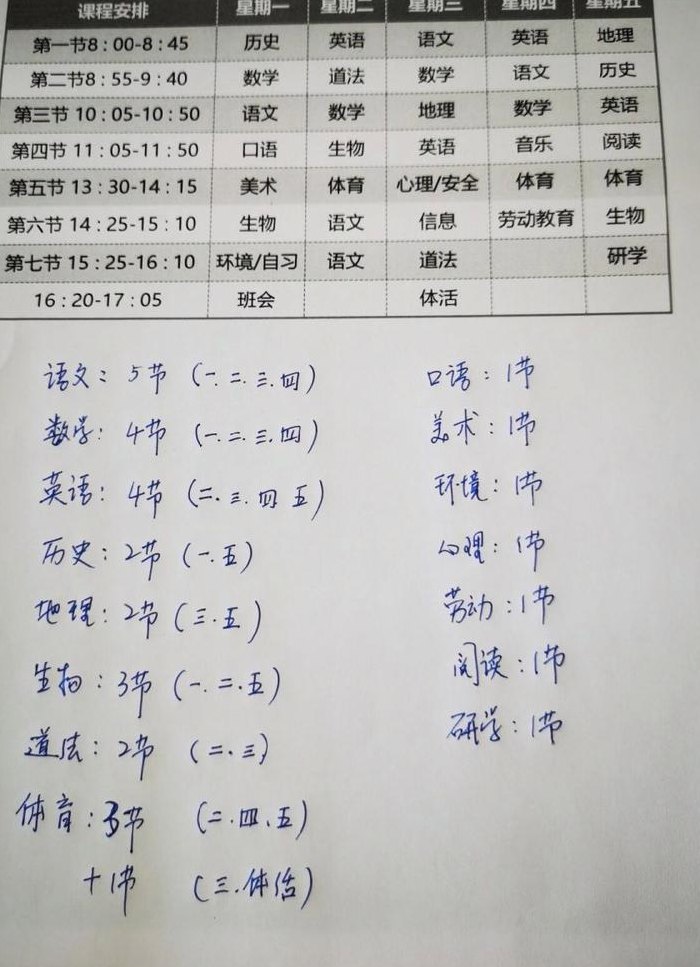 课程安排 星期一 星期二 星期三 星期四 星期五
第一节8：00-8：45 历史 英语 语文 英语 地理
第二节8：55-9：40 数学 道法 数学 语文 历史
第三节 10：05-10：50 语文 数学 地理 数学 英语
第四节 11：05-11：50 口语 生物 英语 音乐 阅读
第五节 13：30-14：15 美术 体育 心理/安全 体育 体育
第六节 14：25-15：10 生物 语文 信息 劳动教育 生物
第七节 15：25-16：10 环境/自习 语文 道法 研学
16：20-17：05 班会 体活
语文：5节（一.二.三.四） 口语：1节
数学：4节（一.二.三.四） 美术：1节
英语：4节（二.三.四 五） 环境：1节
历史：2节（一.五） 心理：1节
地理：2节（三.五） 劳动：1节
生物：3节（一.二.五） 阅读：1节
道法：2节（二.三） 研学：1节
体育：3节（二.四.五）
+1节（三.体活）